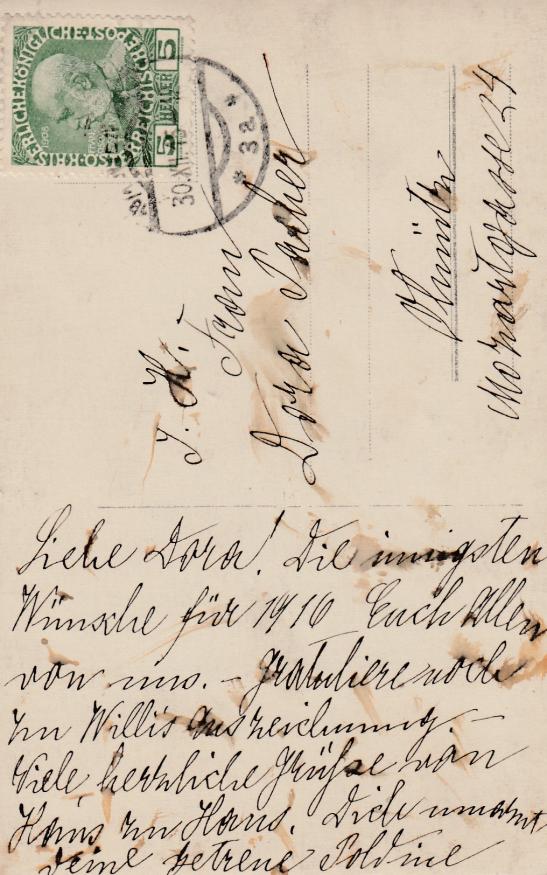 KAISERLICHE KÖNIGLICHE ÖSTERREICHISCHE POST
5 HELLER 5
1908
30.XII.
* 3a *
I. H. Frau
Dora Pacher
Olmütz
Mozartgasse 24
Liebe Dora! Die innigsten
Wünsche für 1916 Euch Allen
von uns. – Gratuliere noch
zu Willis Auszeichnung. –
Viele herzliche Grüße von
Haus zu Haus. Dich umarmt
Deine getreue Poldine